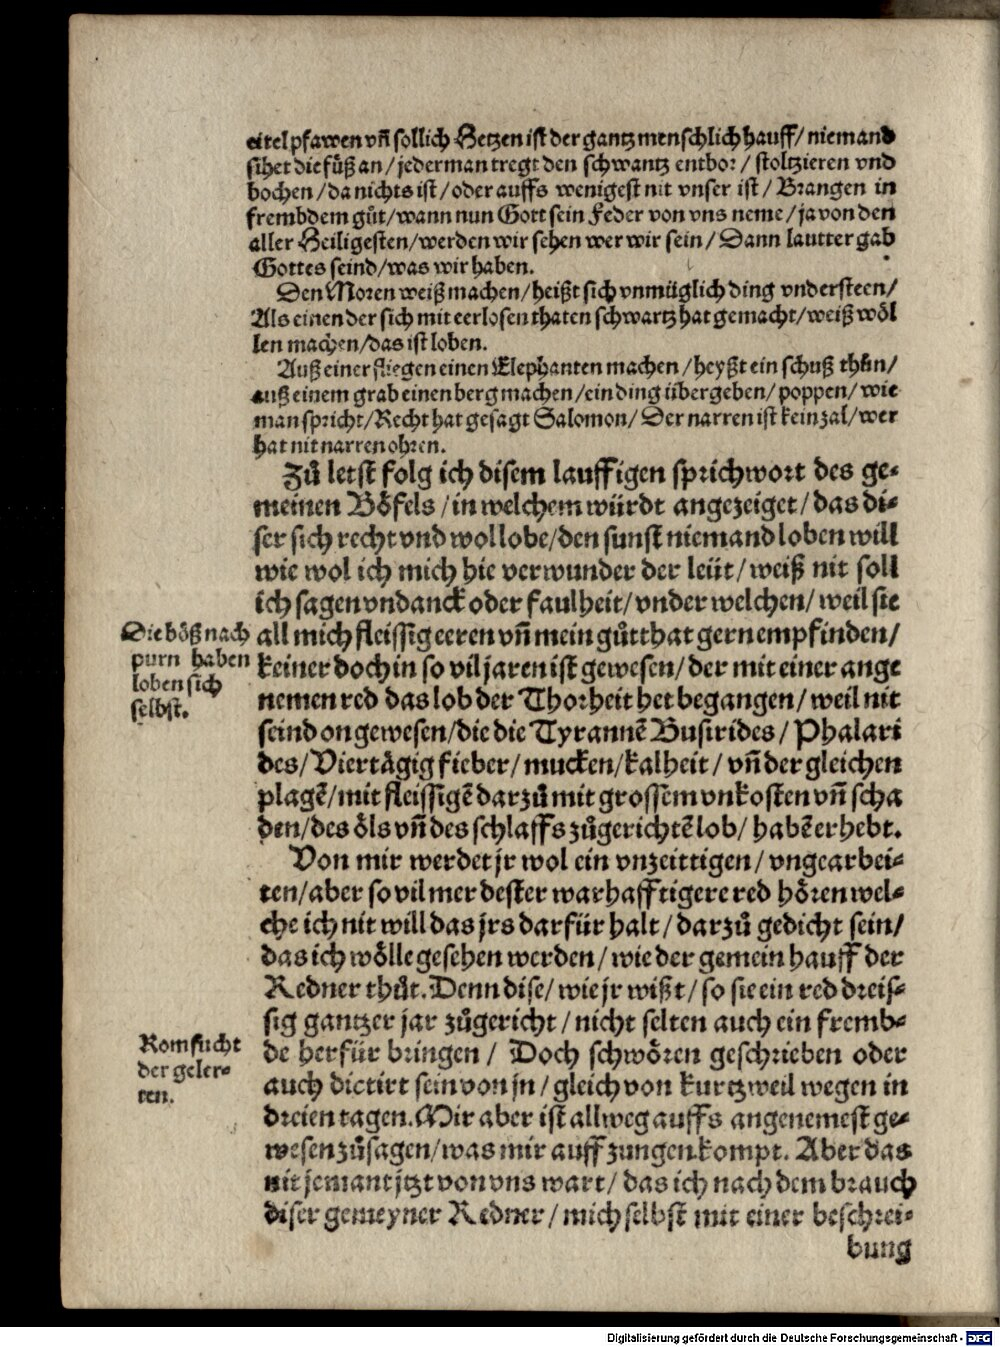 eitel pfawen vñ sollich Hetzen ist der gantz menschlich hauff/ niemand
sihet die füß an/ jederman tregt den schwantz entbor/ stoltzieren vnd
bochen/ da nichts ist/ oder auffs wenigest nit vnser ist/ Brangen in
frembdem gůt/ wann nun Gott sein Feder von vns neme/ ja von den
aller Heiligesten/ werden wir sehen wer wir sein/ Dann lautter gab
Gottes seind/ was wir haben.
Den Moren weiß machen/ heißt sich vnmüglich ding vndersteen/
Als einen der sich mit eerlosen thaten schwartz hat gemacht/ weiß wöl
len machen/ das ist loben.
Auß einer fliegen einen Elephanten machen/ heyßt ein schuß thůn/
auß einem grab einen berg machen/ ein ding übergeben/ poppen/ wie
man spricht/ Recht hat gesagt Salomon/ Der narren ist kein zal/ wer
hat nit narren ohren.
Zů letst folg ich disem lauffigen sprichwort des ge⸗
meinen Böfels/ in welchem würdt angezeiget/ das di⸗
ser sich recht vnd wol lobe/ den sunst niemand loben will
wie wol ich mich hie verwunder der leüt/ weiß nit soll
ich sagen vndanck oder faulheit/ vnder welchen/ weil sie
Die böß nach
purn haben
loben sich
selbst.
all mich fleissig eeren vñ mein gůtthat gern empfinden/
keiner doch in so vil jaren ist gewesen/ der mit einer ange
nemen red das lob der Thorheit het begangen/ weil nit
seind on gewesen/ die die Tyrannẽ Busirides/ Phalari
des/ Viertägig fieber/ mucken/ kalheit/ vñ der gleichen
plagẽ/ mit fleissigẽ darzů mit grossem vnkosten vñ scha
den/ des öls vñ des schlaffs zůgerichtẽ lob/ habẽ erhebt.
Von mir werdet jr wol ein vnzeittigen/ vngearbei⸗
ten/ aber so vil mer dester warhafftigere red hören wel⸗
che ich nit will das jrs darfür halt/ darzů gedicht sein/
das ich wölle gesehen werden/ wie der gemein hauff der
Redner thůt. Denn dise/ wie jr wißt/ so sie ein red dreis⸗
sig gantzer jar zůgericht/ nicht selten auch ein fremb⸗
Romsucht
der geler⸗
ten.
de herfür bringen/ Doch schwören geschrieben oder
auch dictirt sein von jn/ gleich von kurtzweil wegen in
dreien tagen. Mir aber ist allweg auffs angenemest ge⸗
wesen zůsagen/ was mir auff zungen kompt. Aber das
nit jemant jtzt von vns wart/ das ich nach dem brauch
diser gemeyner Redner/ mich selbst mit einer beschrei⸗
bung
Digitalisierung gefördert durch die Deutsche Forschungsgemeinschaft - DFG